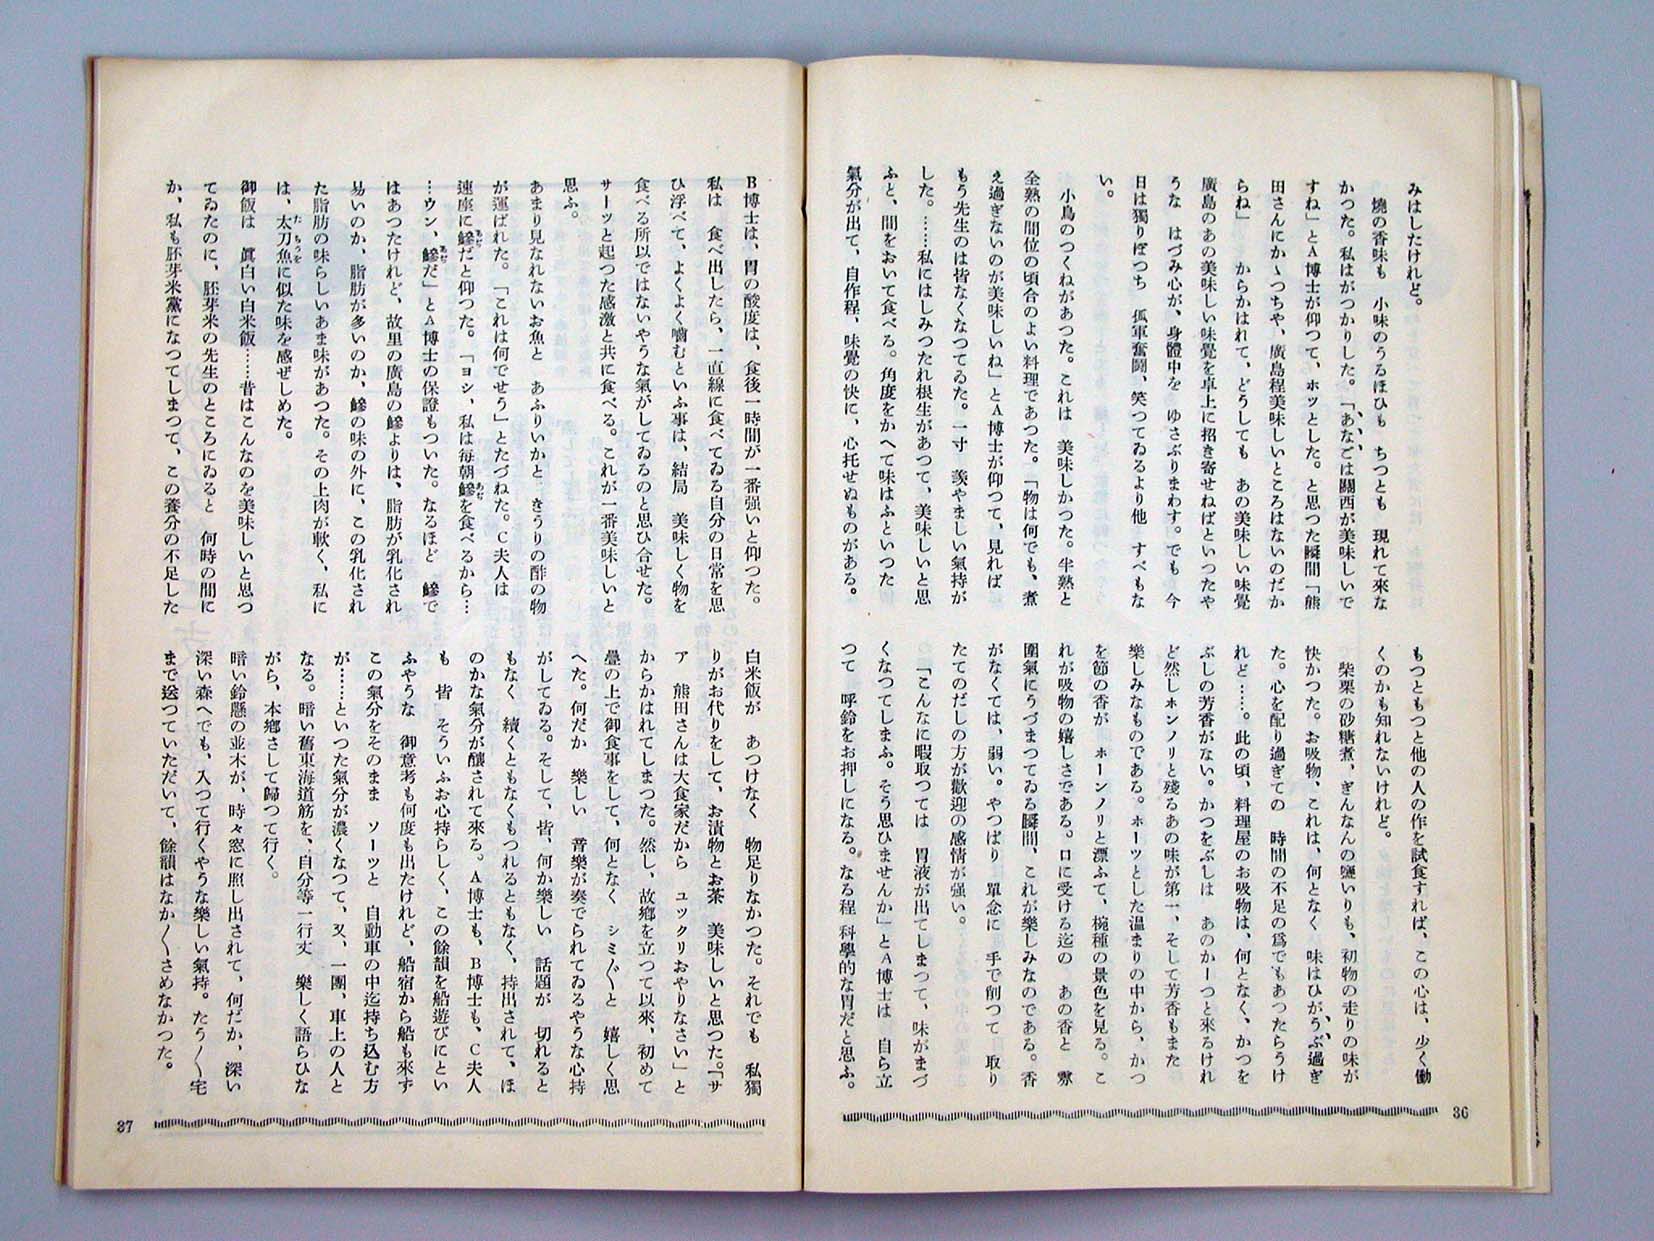 みはしたけれど。
燒の香味も　小味のうるほひも　ちつとも　現れて來な
かつた。私はがつかりした。「あなごは關西が美味しいで
すね」とA博士が仰つて、ホッとした。と思つた瞬間「熊
田さんにかゝつちや、廣島程美味しいところはないのだか
らね」　からかはれて、どうしても　あの美味しい味覺
廣島のあの美味しい味覺を卓上に招き寄せねばといつたや
うな　はづみ心が、身體中を　ゆさぶりまわす。でも　今
日は獨りぽつち　孤軍奮鬪、笑つてゐるより他　すべもな
い。
小鳥のつくねがあつた。これは　美味しかつた。半熟と
全熟の間位の頃合のよい料理であつた。「物は何でも、煮
え過ぎないのが美味しいね」とA博士が仰つて、見れば
もう先生のは皆なくなつてゐた。一寸　羨やましい氣持が
した。……私にはしみつたれ根生があつて、美味しいと思
ふと、間をおいて食べる。角度をかへて味はふといつた
氣分が出て、自作程、味覺の快に、心托せぬものがある。
もつともつと他の人の作を試食すれば、この心は、少く働
くのかも知れないけれど。
柴栗の砂糖煮、ぎんなんの鹽いりも、初物の走りの味が
快かつた。お吸物、これは、何となく　味はひがうぶ過ぎ
た。心を配り過ぎての　時間の不足の爲でもあつたらうけ
れど……。此の頃、料理屋のお吸物は、何となく、かつを
ぶしの芳香がない。かつをぶしは　あのかーつと來るけれ
ど然しホンノリと殘るあの味が第一、そして芳香もまた
樂しみなものである。ホーツとした温まりの中から、かつ
を節の香が　ホーンノリと漂ふて、椀種の景色を見る。こ
れが吸物の嬉しさである。口に受ける迄の　あの香と　雰
圍氣にうづまつてゐる瞬間、これが樂しみなのである。香
がなくては、弱い。やつぱり　單念に　手で削つて　取り
たてのだしの方が歡迎の感情が强い。
「こんなに暇取つては　胃液が出てしまつて、味がまづ
くなつてしまふ。そう思ひませんか」とA博士は　自ら立
つて　呼鈴をお押しになる。なる程　科學的な胃だと思ふ。
36
B博士は、胃の酸度は、食後一時間が一番强いと仰つた。
私は　食べ出したら、一直線に食べてゐる自分の日常を思
ひ浮べて、よくよく嚙むといふ事は、結局　美味しく物を
食べる所以ではないやうな氣がしてゐるのと思ひ合せた。
サーツと起つた感激と共に食べる。これが一番美味しいと
思ふ。
あまり見なれないお魚と　あふりいかと　きうりの酢の物
が運ばれた。「これは何でせう」とたづねた。C夫人は
速座に鰺だと仰つた。「ヨシ、私は每朝鰺を食べるから…
…ウン、鰺だ」とA博士の保證もついた。なるほど　鰺で
はあつたけれど、故里の廣島の鰺よりは、脂肪が乳化され
易いのか、脂肪が多いのか、鰺の味の外に、この乳化され
た脂肪の味らしいあま味があつた。その上肉が軟く、私に
は、太刀魚に似た味を感ぜしめた。
御飯は　眞白い白米飯……昔はこんなのを美味しいと思つ
てゐたのに、胚芽米の先生のところにゐると　何時の間に
か、私も胚芽米黨になつてしまつて、この養分の不足した
白米飯が　あつけなく　物足りなかつた。それでも　私獨
りがお代りをして、お漬物とお茶　美味しいと思つた。「サ
ア　熊田さんは大食家だから　ユックリおやりなさい」と
からかはれてしまつた。然し、故鄕を立つて以來、初めて
疊の上で御食事をして、何となく　シミ〴〵と　嬉しく思
へた。何だか　樂しい　音樂が奏でられてゐるやうな心持
がしてゐる。そして、皆、何か樂しい　話題が　切れると
もなく　續くともなくもつれるともなく、持出されて、ほ
のかな氣分が釀されて來る。A博士も、B博士も、C夫人
も　皆　そういふお心持らしく、この餘韻を船遊びにとい
ふやうな　御意考も何度も出たけれど、船宿から船も來ず
この氣分をそのまま　ソーツと　自動車の中迄持ち込む方
が……といつた氣分が濃くなつて、又、一團、車上の人と
なる。暗い舊東海道筋を、自分等一行丈　樂しく語らひな
がら、本鄕さして歸つて行く。
暗い鈴懸の並木が、時々窓に照し出されて、何だか、深い
深い森へでも、入つて行くやうな樂しい氣持。たう〳〵宅
まで送つていただいて、餘韻はなか〳〵さめなかつた。
37